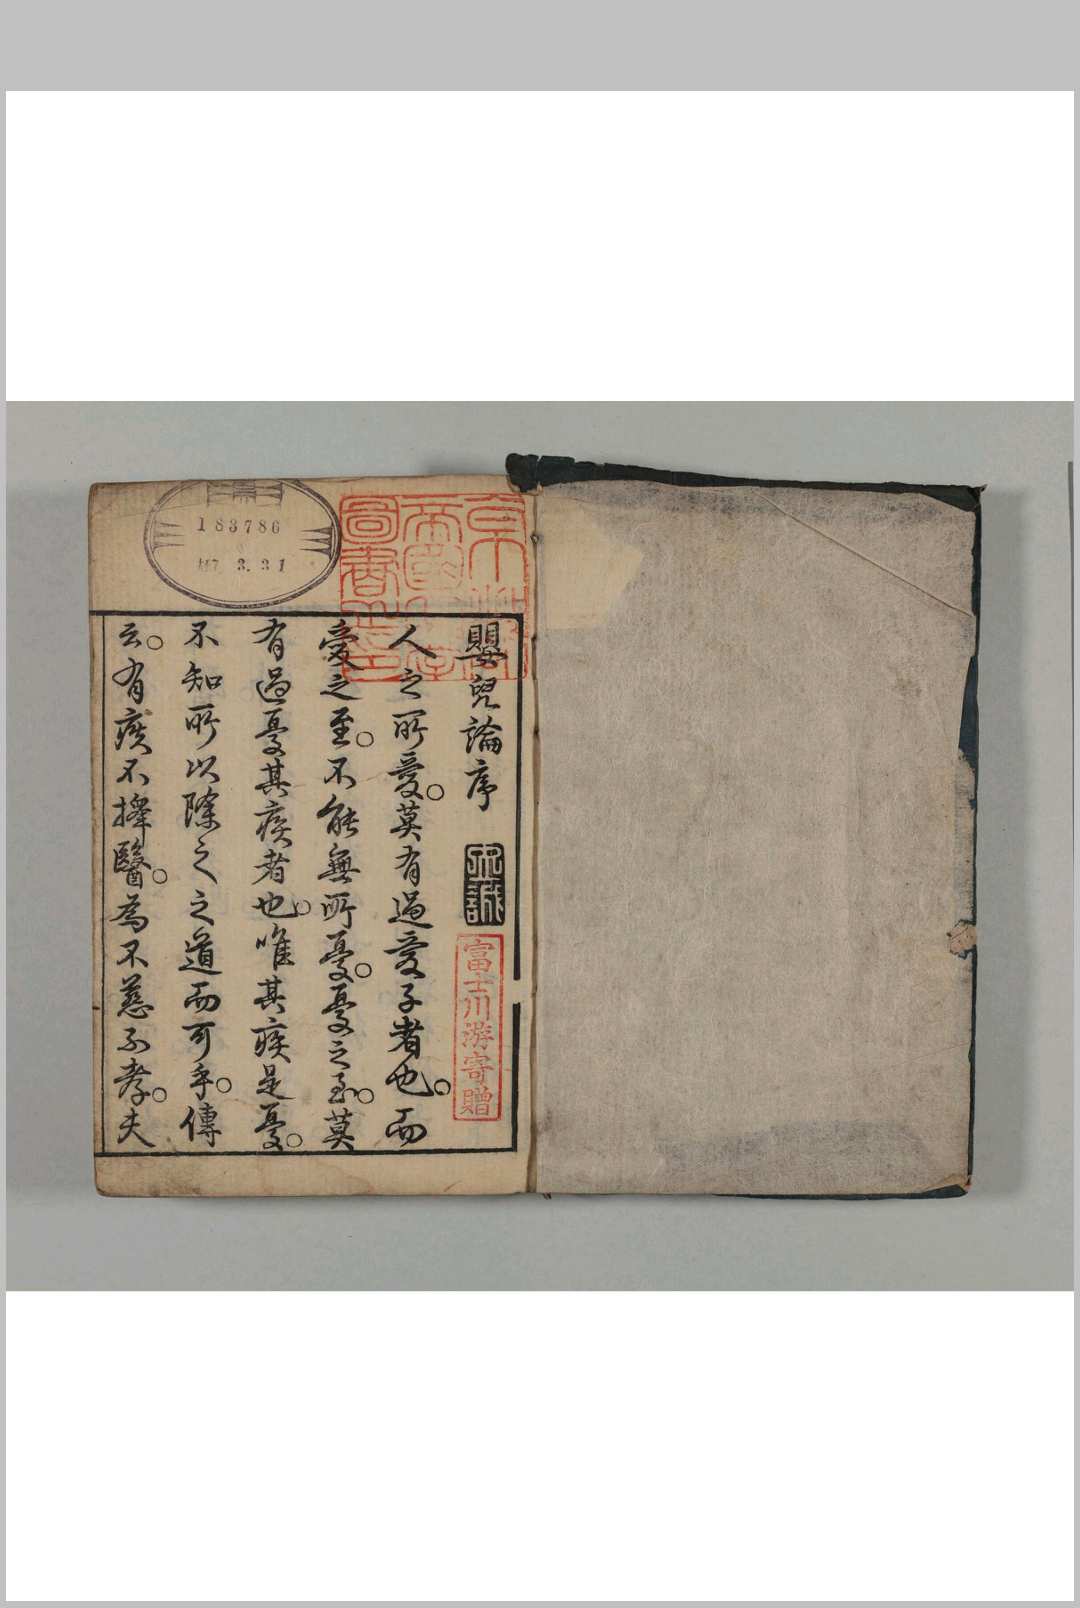 嬰兒論序
富士川游寄贈
京都帝國大學圖書之印
人之所愛。莫有過愛子者也。而
愛之至。不能無所憂。憂之至。莫
有過憂其疾者也。唯其疾是憂。
不知所以除之之道而可乎。傳
云。有疾不擇醫。為不慈不孝。夫
183786
大正7. 3. 31